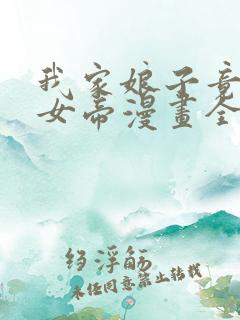 我家娘子竟
女帝漫畫全
绉浮觞
未经同意禁止转载